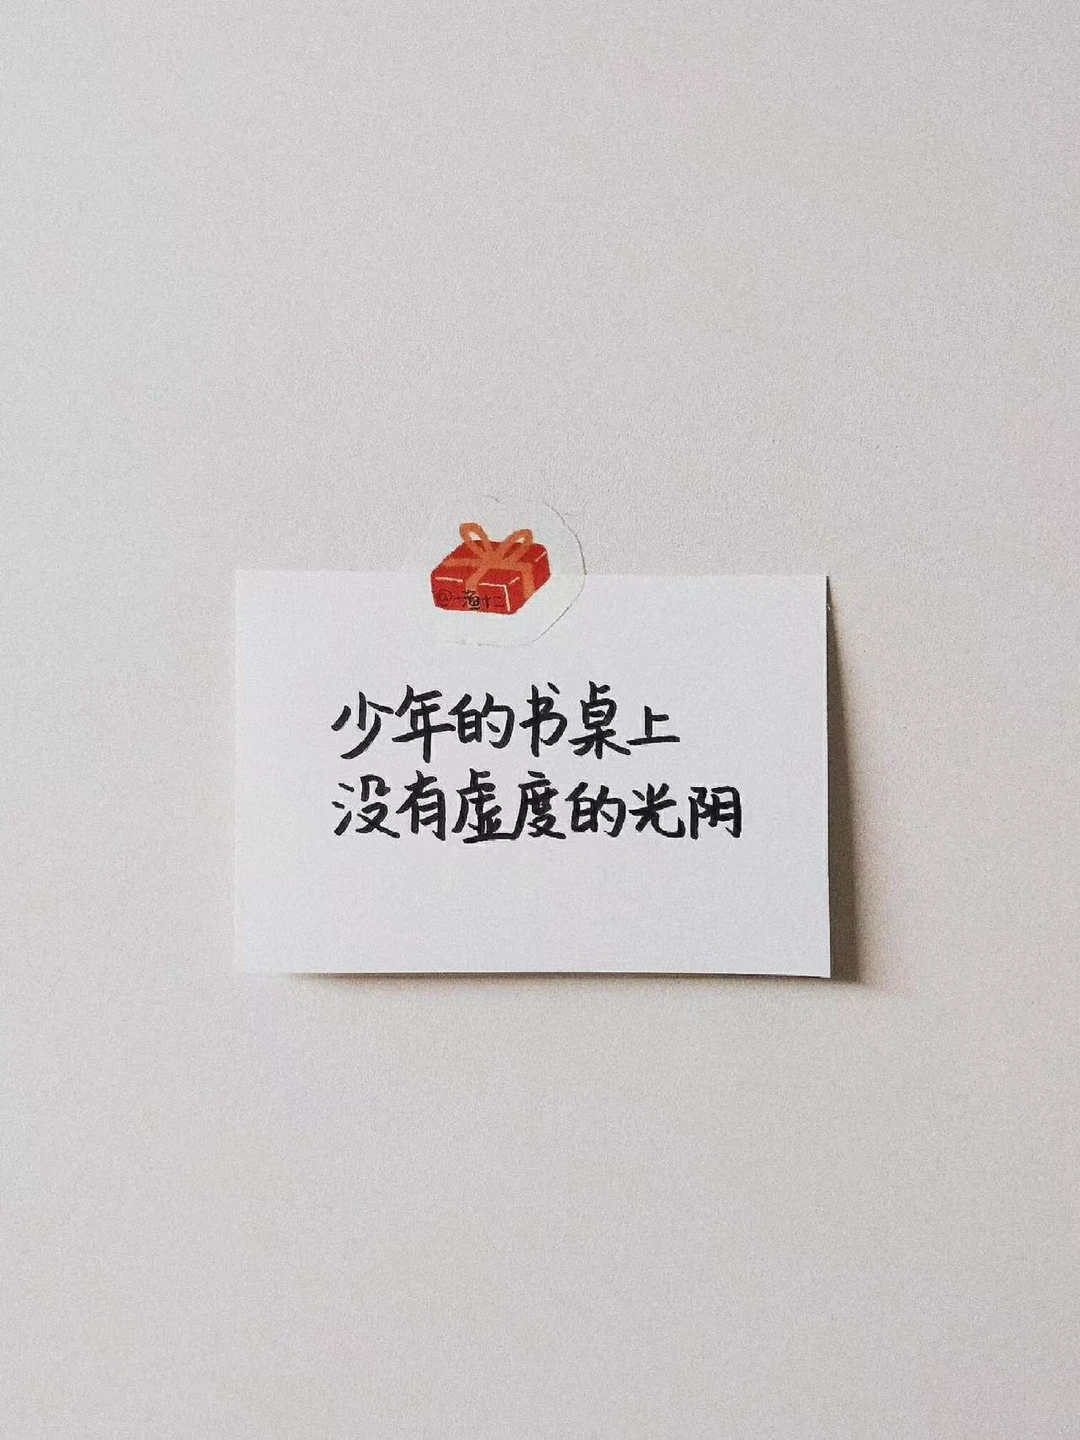 少年的书桌上
没有虚度的光阴